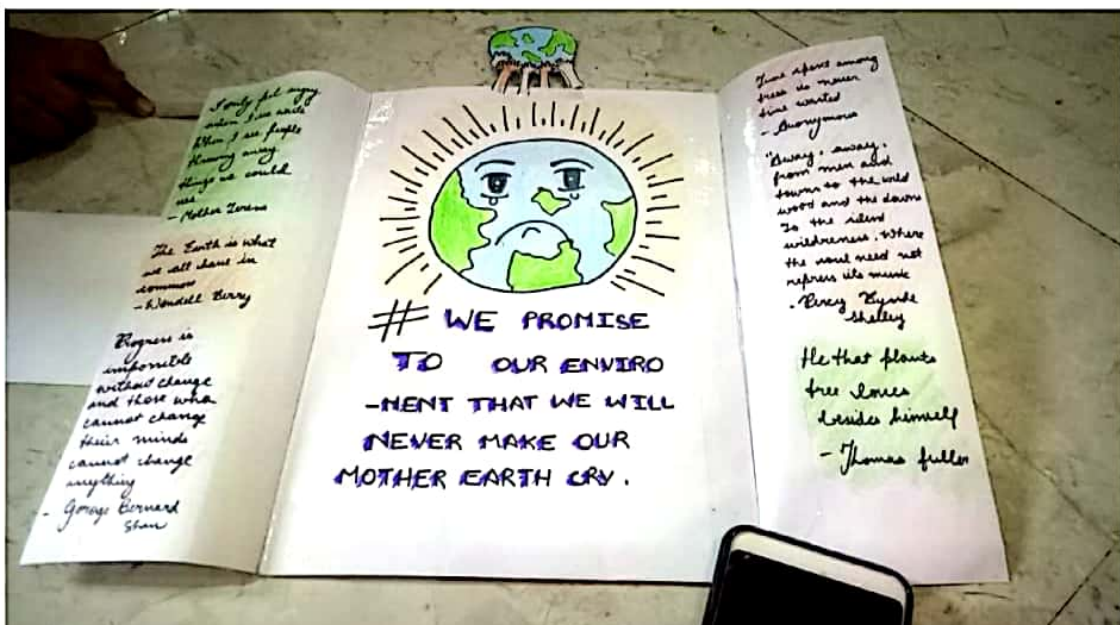 I only feel angry
when I see waste
When I see people
throwing away
things we could
use
- Mother Teresa
The Earth is what
we all have in
common
- Wendell Berry
Progress is
impossible
without change
and those who
cannot change
their minds
cannot change
anything
- George Bernard
Shaw
# WE PROMISE
TO OUR ENVIRO
-NMENT THAT WE WILL
NEVER MAKE OUR
MOTHER EARTH CRY.
Time spent among
trees is never
time wasted
- Anonymous
"Away, away,
from men and
towns to the wild
wood and the downs
To the silent
wilderness. Where
the soul need not
repress its music
- Percy Bysshe
Shelley
He that plants
tree loves
besides himself
- Thomas fuller